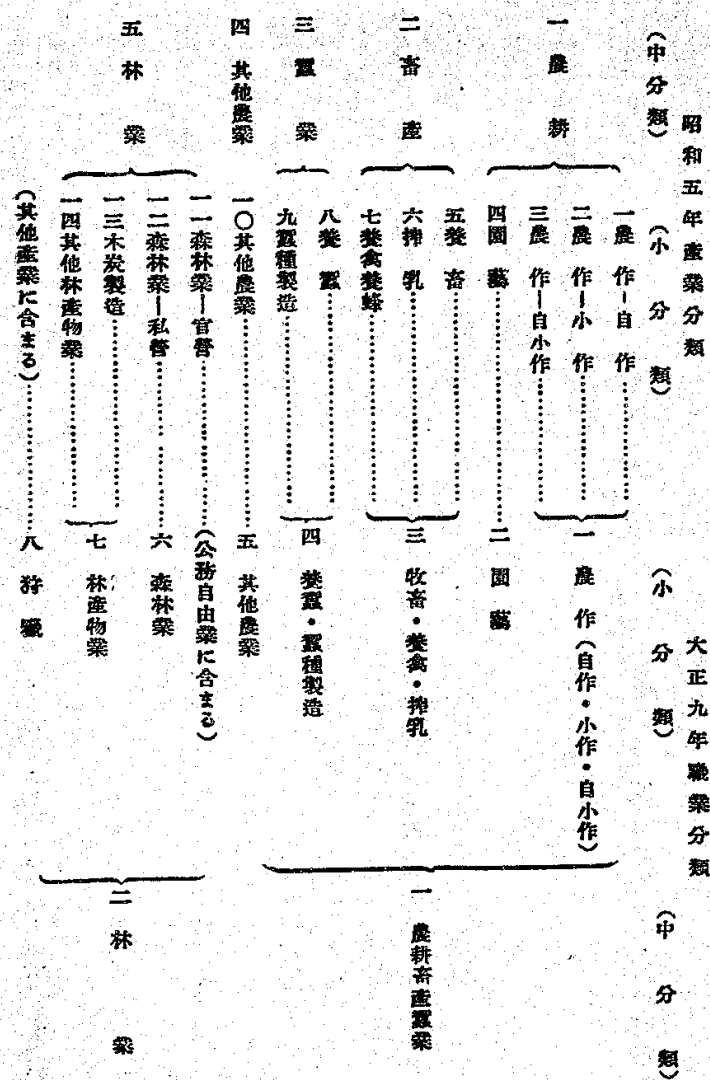 昭和五年産業分類
大正九年職業分類
（中分類）
（小分類）
（小分類）
（中分類）
一農耕
一農作―自作
二農作―小作
三農作―自小作
一農作（自作・小作・自小作）
四園藝
二園藝
二畜産
五養畜
六搾乳
七養禽養蜂
三牧畜・養禽・搾乳
三蠶業
八養蠶
九蠶種製造
四養蠶・蠶種製造
四其他農業
一〇其他農業
五其他農業
一農耕畜産蠶業
五林業
一一森林業―官營
（公務自由業に含まる）
一二森林業―私營
六森林業
一三木炭製造
一四其他林産物業
七林産物業
（其他産業に含まる）
八狩獵
二林業